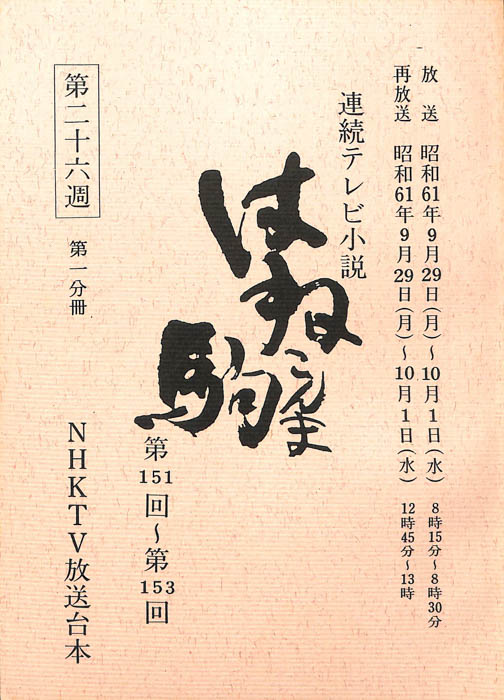 放送 昭和61年9月29日(月)〜10月1日(水) 8時15分〜8時30分
再放送 昭和61年9月29日(月)〜10月1日(水) 12時45分〜13時
連続テレビ小説
はね駒
こんま
第151回〜第153回
第二十六週 第一分冊
NHKTV放送台本